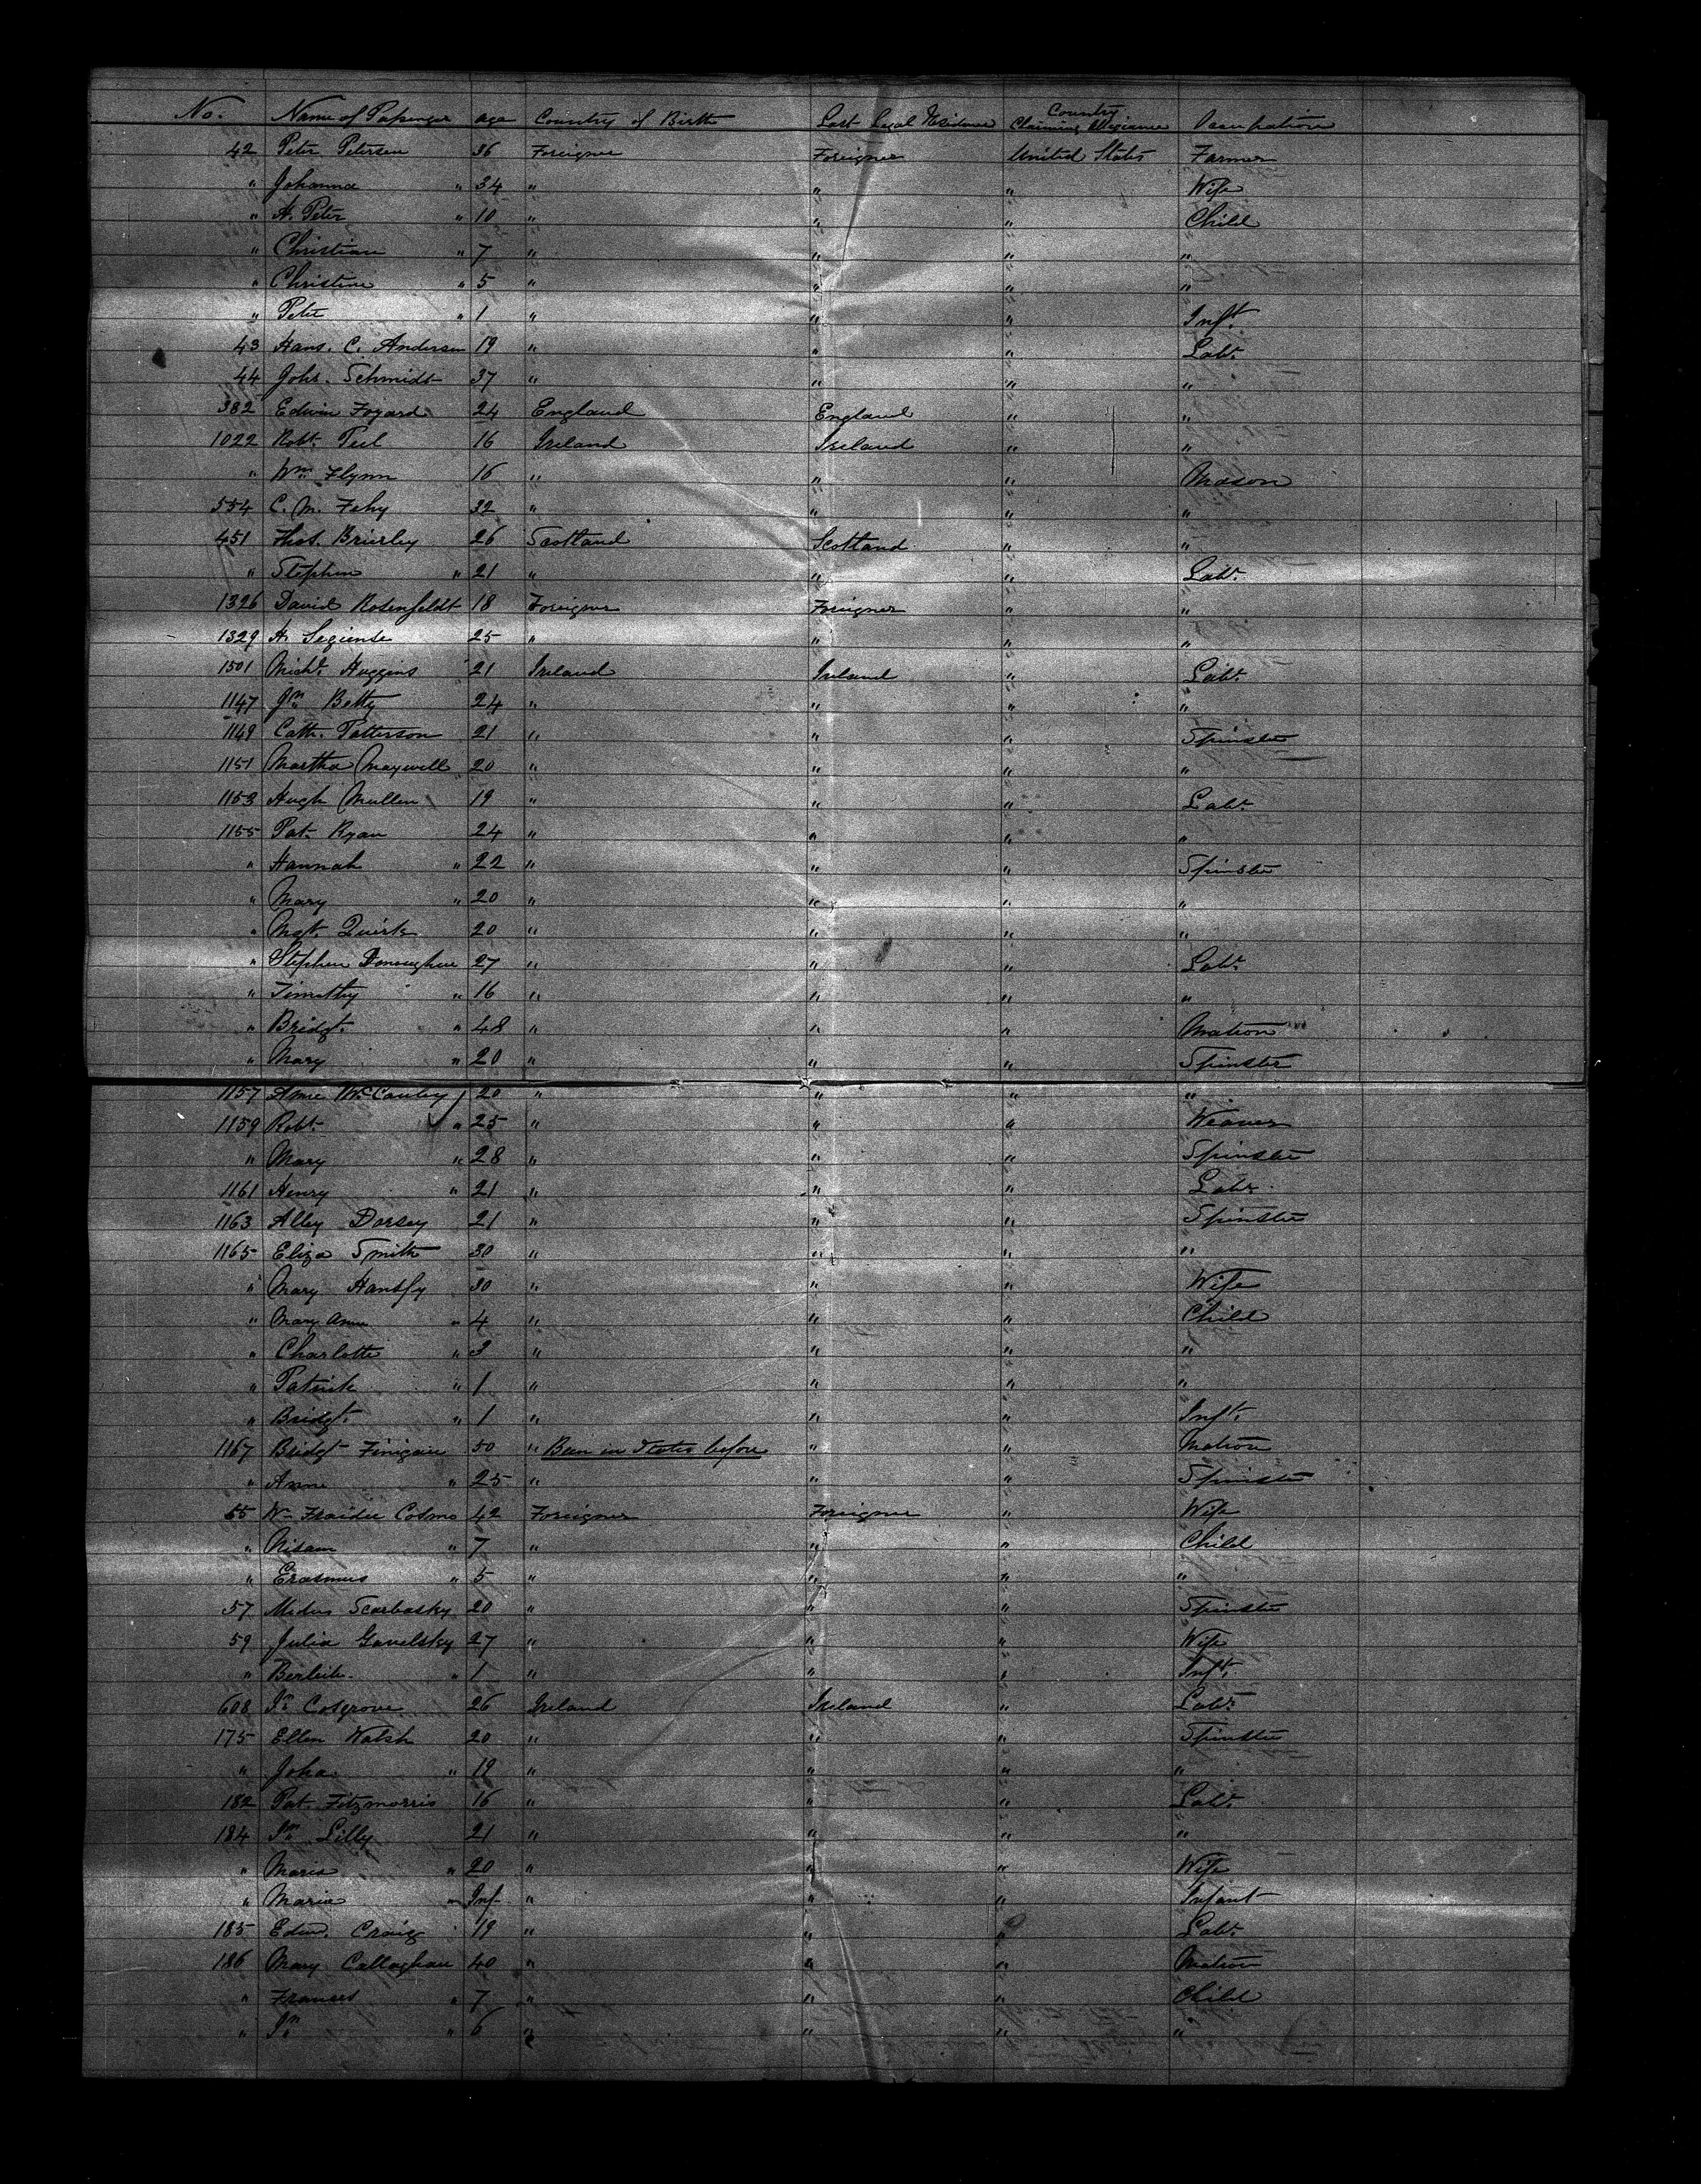 No. Name of Passenger age Country of Birth Last Legal Residence Country Claiming Allegiance Occupation
42 Peter Petersen 36 Foreigner Foreigner United States Farmer
" Johanna " 34 " " " Wife
" A. Peter " 10 " " " Child
" Christian " 7 " " " "
" Christine " 5 " " " "
" Peter " 1 " " " Inft.
43 Hans. C. Andersen 19 " " " Labr.
44 Johs. Schmidt 37 " " " "
382 Edwin Fogard 24 England England " "
1022 Robt. Peel 16 Ireland Ireland " "
" Wm. Flynn 16 " " " Mason
554 C. M. Fehy 32 " " " "
451 Thos. Brierley 26 Scotland Scotland " "
" Stephen " 21 " " " Labr.
1326 David Rosenfeldt 18 Foreigner Foreigner " "
1329 H. 25 " " " "
1501 Michl. Huggins 21 Ireland Ireland " Labr.
1147 Jn. Betty 24 " " " "
1149 Cath. Patterson 21 " " " Spinster
1151 Martha Maxwell 20 " " " "
1153 Hugh Mullen 19 " " " Labr.
1155 Pat. Ryan 24 " " " "
" Hannah " 22 " " " Spinster
" Mary " 20 " " " "
" Mgt. Quirk 20 " " " "
" Stephen Donoughue 27 " " " Labr.
" Timothy " 16 " " " "
" Bridgt. " 48 " " " Matron
" Mary " 20 " " " Spinster
1157 Anne McCauley 20 " " " "
1159 Robt. " 25 " " " Weaver
" Mary " 28 " " " Spinster
1161 Henry " 21 " " " Labr.
1163 Alley Dorsey 21 " " " Spinster
1165 Eliza Smith 30 " " " "
" Mary 30 " " " Wife
" Mary Ann " 4 " " " Child
" Charlotte " 3 " " " "
" Patrick " 1 " " " "
" Bridgt. " 1 " " " Inft.
1167 Bridgt Finigan 50 " Been in States before " " Matron
" Anne " 25 " " " Spinster
55 Cosmo 42 Foreigner Foreigner " Wife
" Nisam " 7 " " " Child
" Erasmus " 5 " " " "
57 Scarbasky 20 " " " Spinster
59 Julia Gavelsky 27 " " " Wife
" " 1 " " " Inft.
608 Jn. Cosgrove 26 Ireland Ireland " Labr.
175 Ellen Walsh 20 " " " Spinster
" Joha. " 19 " " " "
182 Pat. Fitzmorris 16 " " " Labr.
184 Jn. Lilly 21 " " " "
" Maria " 20 " " " Wife
" Maria " Inf. " " " Infant
185 Edw. Craig 19 " " " Labr.
186 Mary Callaghan 40 " " " Matron
" Frances " 7 " " " Child
" Jn. " 6 " " " "